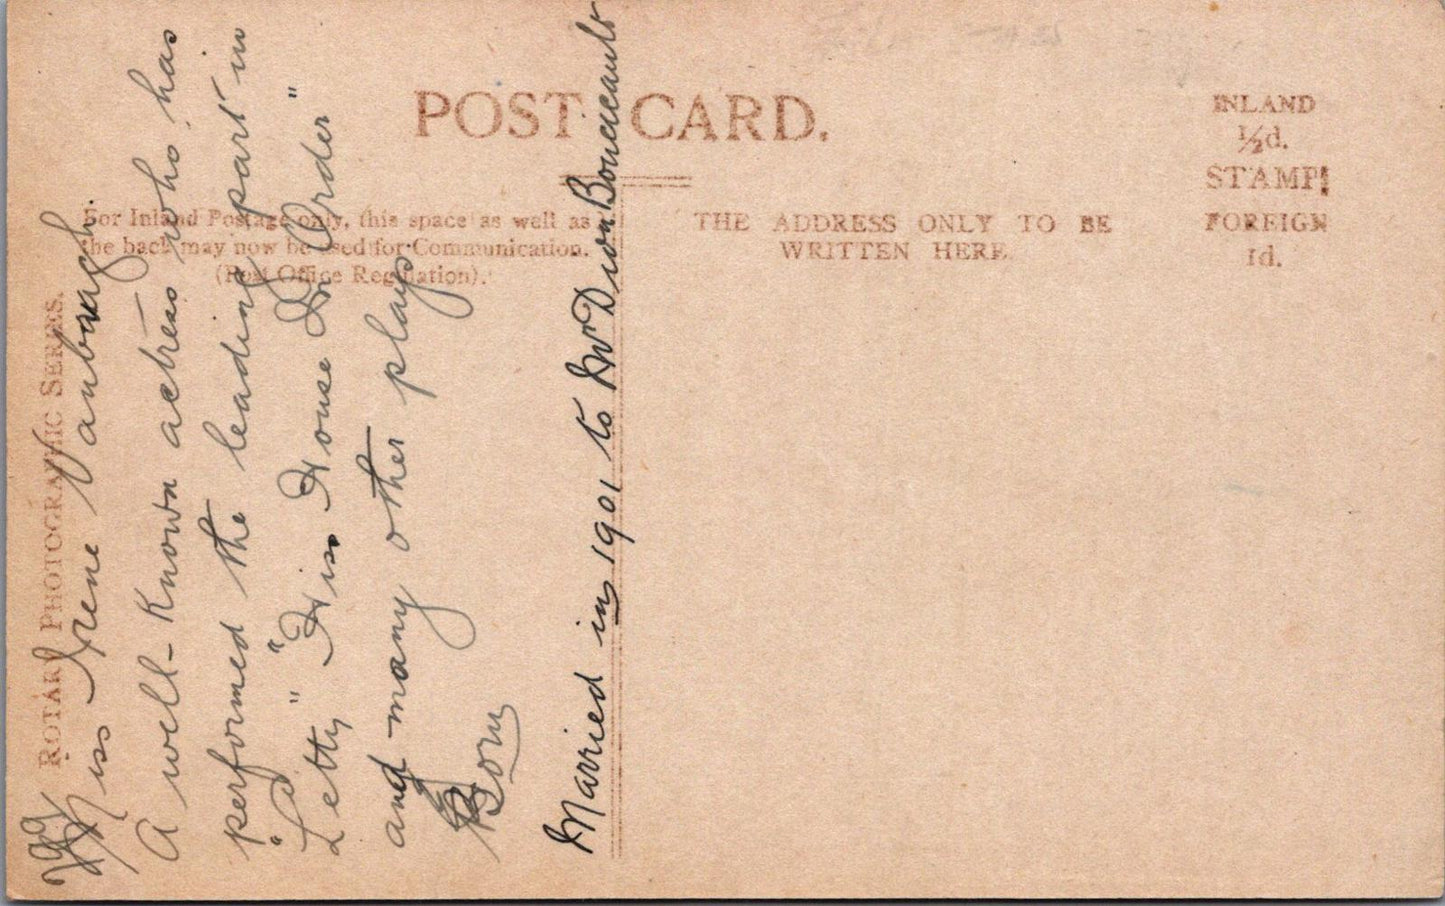 POST CARD.
INLAND
½d.
STAMP!
FOREIGN
1d.
For Inland Postage only, this space as well as
the back may now be used for Communication.
(Post Office Regulation).
THE ADDRESS ONLY TO BE
WRITTEN HERE.
ROTARY PHOTOGRAPHIC SERIES.
Miss Irene Vanbrugh.
A well-known actress who has
performed the leading part in
"Letty" "His House In Order"
and many other plays.
Born
Married in 1901 to Mr Dion Boucicault